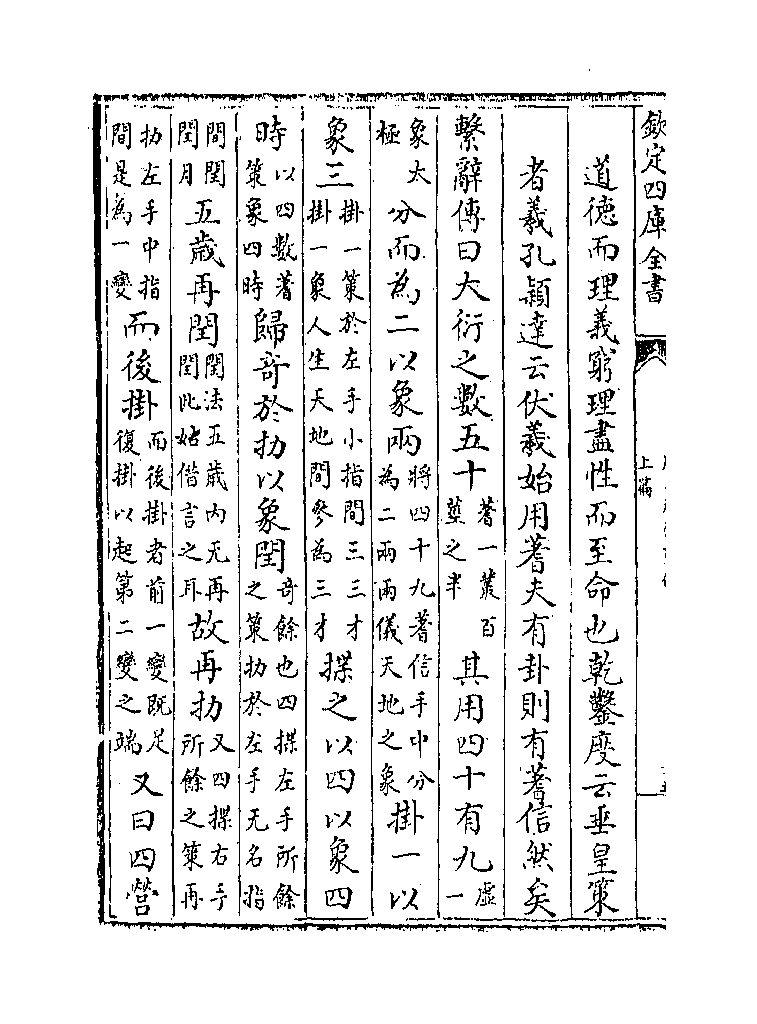 欽定四庫全書
上篇
道德而理義窮理盡性而至命也乾鑿度云垂皇策
者羲孔穎達云伏羲始用蓍夫有卦則有蓍信然矣
繫辭傳曰大衍之數五十蓍一叢百莖之半其用四十有九虛一
象太極分而為二以象兩將四十九蓍信手中分為二兩兩儀天地之象掛一以
象三掛一策於左手小指間三三才掛一象人生天地間參為三才揲之以四以象四
時以四數蓍策象四時歸奇於扐以象閏奇餘也四揲左手所餘之策扐於左手无名指
間閏閏月五歲再閏閏法五歲內无再閏此姑借言之耳故再扐又四揲右手所餘之策再
扐左手中指間是為一變而後掛而後掛者前一變既足復掛以起第二變之端又曰四營